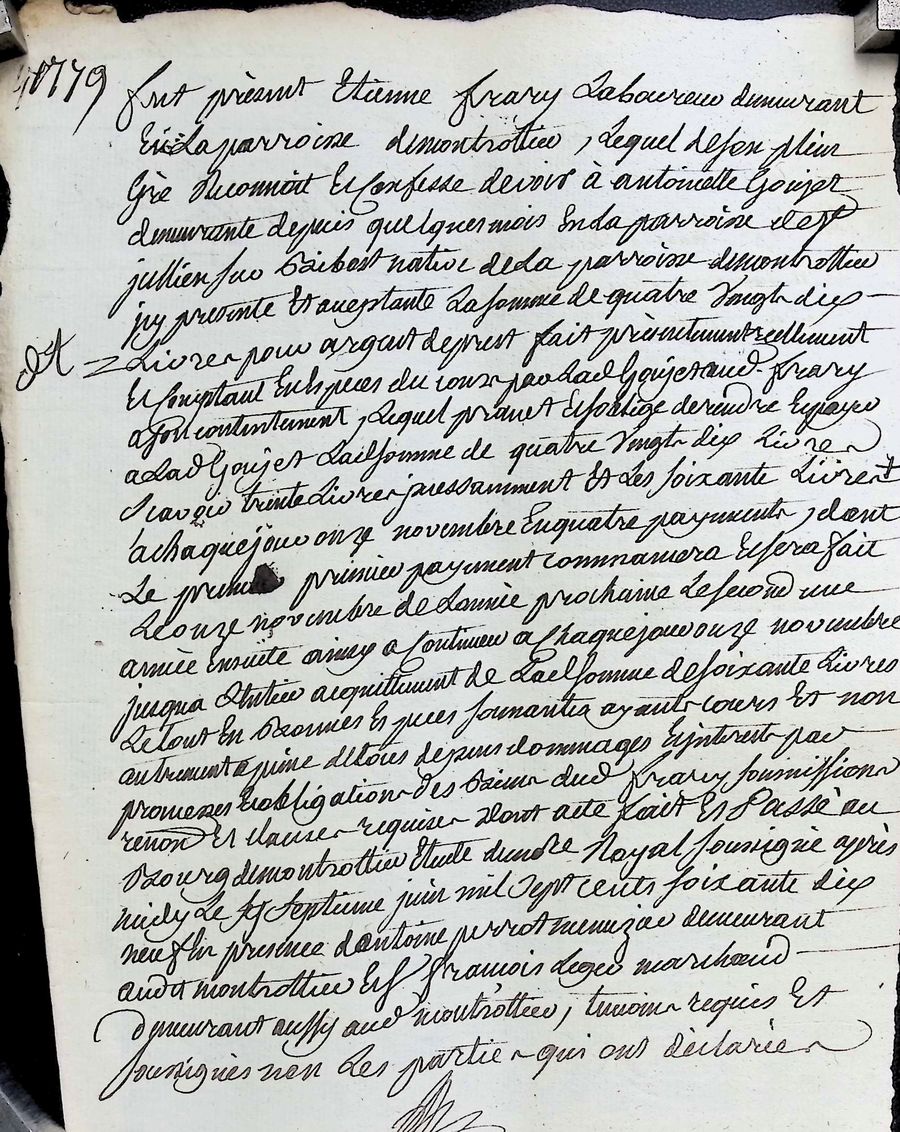 1779
fut présent Etienne frary Laboureur demeurant
En La parroisse demontrottier, Lequel deson plein
Gré Reconnoit Et Confesse devoir à antoinette Goujet
demeurante depuis quelques mois En La parroisse de St
jullien sur Bibost native de La parroisse demontrottier
jcy presente Et aceptante La somme de quatre Vingt dix
dt = Livres pour argent deprest fait présentement reellement
Et Comptant En Espèces du cours par Lad Goujet aud frary
a son contentement, Lequel promet Et soblige de rendre Et payer
a Lad Goujet Lad somme de quatre Vingt dix Livres
Scavoir trente Livres jncessamment Et Les soixante Livres
a chaque jour onze novembre En quatre payments, dont
Le premier payment commancera Et sera fait
Le onze novembre de Lannée prochaine Le second une
année Ensuite ainsy a Continuer a Chaque jour onze novembre
jusqua Entier acquittement de Lad somme de soixante Livres
Le tout En Bonnes Espèces sonnantes ayants cours Et non
autrement a peine de tous depens dommages Et jnterest par
promesses Et obligation des Biens dud frary soumissions
renon Et clauses requises dont acte fait Et Passé au
Bourg demontrottier Etude du nore Royal soussigné après
midy Le septieme juin mil sept cents soixante dix
neuf En presence dantoine perrot demeurant
aud montrottier Et Sr francois Leger marchand
demeurant aussy aud montrottier, temoins requis Et
soussignés non Les parties qui ont déclarées